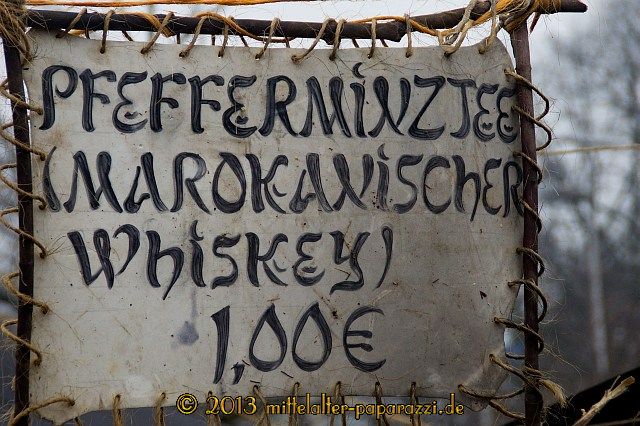 PFEFFERMINZTEE
(MAROKANISCHER
WhiSKEY)
1,00€
© 2013 mittelalter-paparazzi.de